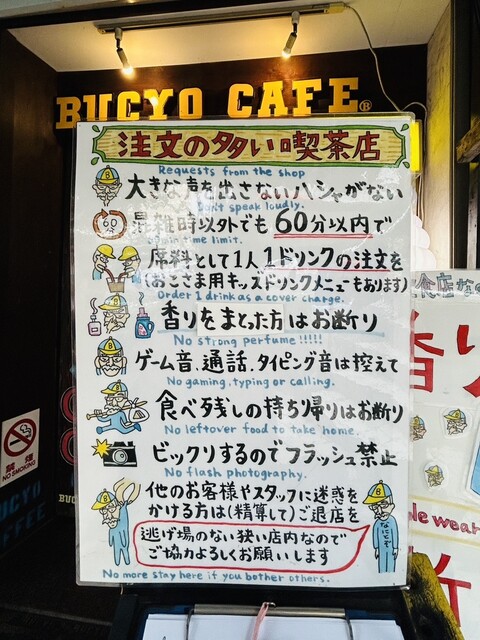 BUCYO CAFE®
注文の多い喫茶店
Requests from the shop
大きな声を出さない ハシャがない
Don't speak loudly.
混雑時以外でも 60分以内で
60min time limit.
席料として1人 1ドリンクの注文を
(お子さま用キッズドリンクメニューもあります)
Order 1 drink as a cover charge.
香りをまとった方はお断り
No strong perfume!!!!!
ゲーム音、通話、タイピング音は控えて
No gaming, typing or calling.
食べ残しの持ち帰りはお断り
No leftover food to take home.
ビックリするのでフラッシュ禁止
No flash photography.
他のお客様やスタッフに迷惑を
かける方は(精算して)ご退店を
逃げ場のない狭い店内なので
ご協力よろしくお願いします
なにとぞ
No more stay here if you bother others.
禁煙
NO SMOKING
BUCYO
COFFEE
食店なの
香り